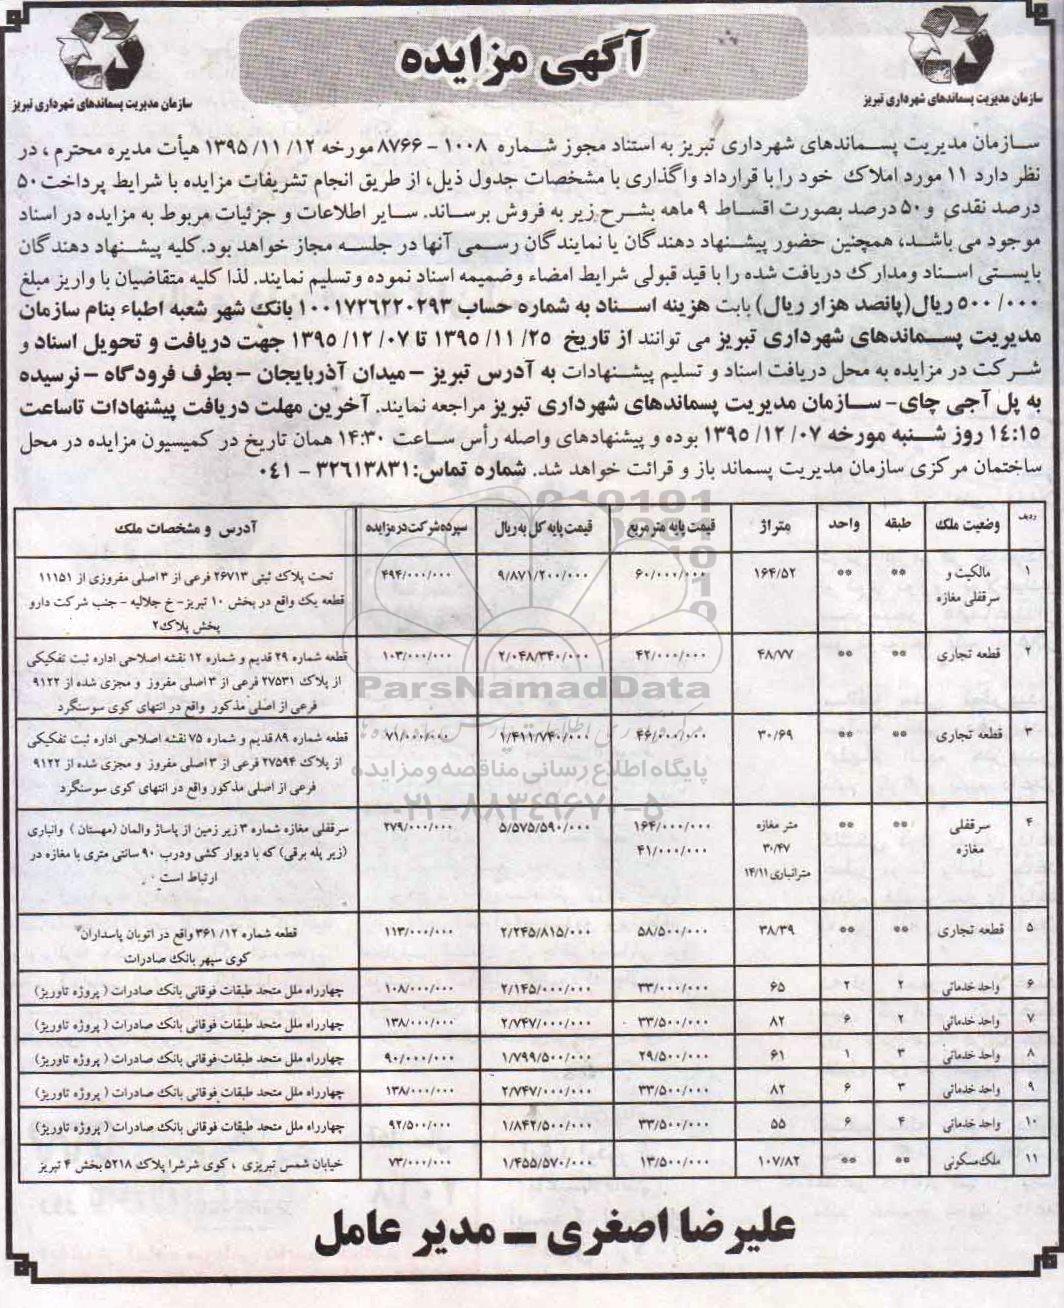 آگهی مزایده
سازمان مدیریت پسماندهای شهرداری تبریز
سازمان مدیریت پسماندهای شهرداری تبریز
سازمان مدیریت پسماندهای شهرداری تبریز به استناد مجوز شماره ۱۰۰۸ - ۸۷۶۶ مورخه ۱۲/ ۱۱/ ۱۳۹۵ هیأت مدیره محترم ، در
نظر دارد ۱۱ مورد املاک خود را با قرارداد واگذاری با مشخصات جدول ذیل، از طریق انجام تشریفات مزایده با شرایط پرداخت ۵۰
درصد نقدی و ۵۰ درصد بصورت اقساط ۹ ماهه بشرح زیر به فروش برساند. سایر اطلاعات و جزئیات مربوط به مزایده در اسناد
موجود می باشد، همچنین حضور پیشنهاد دهندگان یا نمایندگان رسمی آنها در جلسه مجاز خواهد بود. کلیه پیشنهاد دهندگان
بایستی اسناد ومدارک دریافت شده را با قید قبولی شرایط امضاء وضمیمه اسناد نموده وتسلیم نمایند. لذا کلیه متقاضیان با واریز مبلغ
۵۰۰/۰۰۰ ریال(پانصد هزار ریال) بابت هزینه اسناد به شماره حساب ۱۰۰۱۷۲۶۲۲۰۲۹۳ بانک شهر شعبه اطباء بنام سازمان
مدیریت پسماندهای شهرداری تبریز می توانند از تاریخ ۲۵/ ۱۱/ ۱۳۹۵ تا ۰۷/ ۱۲/ ۱۳۹۵ جهت دریافت و تحویل اسناد و
شرکت در مزایده به محل دریافت اسناد و تسلیم پیشنهادات به آدرس تبریز - میدان آذربایجان - بطرف فرودگاه - نرسیده
به پل آجی چای- سازمان مدیریت پسماندهای شهرداری تبریز مراجعه نمایند. آخرین مهلت دریافت پیشنهادات تاساعت
۱۴:۱۵ روز شنبه مورخه ۰۷/ ۱۲/ ۱۳۹۵ بوده و پیشنهادهای واصله رأس ساعت ۱۴:۳۰ همان تاریخ در کمیسیون مزایده در محل
ساختمان مرکزی سازمان مدیریت پسماند باز و قرائت خواهد شد. شماره تماس: ۳۲۶۱۳۸۳۱ - ۰۴۱
ردیف وضعیت ملک طبقه واحد متراژ قیمت پایه متر مربع قیمت پایه کل به ریال سپرده شرکت در مزایده آدرس و مشخصات ملک
۱ مالکیت و ** ** ۱۶۴/۵۲ ۶۰/۰۰۰/۰۰۰ ۹/۸۷۱/۲۰۰/۰۰۰ ۴۹۴/۰۰۰/۰۰۰ تحت پلاک ثبتی ۲۶۷۱۳ فرعی از ۳ اصلی مفروزی از ۱۱۱۵۱
سرقفلی مغازه قطعه یک واقع در بخش ۱۰ تبریز- خ جلالیه - جنب شرکت دارو
پخش پلاک۲
۲ قطعه تجاری ** ** ۴۸/۷۷ ۴۲/۰۰۰/۰۰۰ ۲/۰۴۸/۳۴۰/۰۰۰ ۱۰۳/۰۰۰/۰۰۰ قطعه شماره ۲۹ قدیم و شماره ۱۲ نقشه اصلاحی اداره ثبت تفکیکی
از پلاک ۲۷۵۳۱ فرعی از ۳ اصلی مفروز و مجزی شده از ۹۱۲۲
فرعی از اصلی مذکور واقع در انتهای کوی سوسنگرد
۳ قطعه تجاری ** ** ۳۰/۶۹ ۴۶/۰۰۰/۰۰۰ ۱/۴۱۱/۷۴۰/۰۰۰ ۷۱/۰۰۰/۰۰۰ قطعه شماره ۸۹ قدیم و شماره ۷۵ نقشه اصلاحی اداره ثبت تفکیکی
از پلاک ۲۷۵۹۴ فرعی از ۳ اصلی مفروز و مجزی شده از ۹۱۲۲
فرعی از اصلی مذکور واقع در انتهای کوی سوسنگرد
۴ سرقفلی ** ** متر مغازه ۱۶۴/۰۰۰/۰۰۰ ۵/۵۷۵/۵۹۰/۰۰۰ ۲۷۹/۰۰۰/۰۰۰ سرقفلی مغازه شماره ۳ زیر زمین از پاساژ والمان (مهستان ) وانباری
مغازه ۳۰/۴۷ ۴۱/۰۰۰/۰۰۰ (زیر پله برقی) که با دیوار کشی ودرب ۹۰ سانتی متری با مغازه در
مترانباری ۱۴/۱۱ ارتباط است
۵ قطعه تجاری ** ** ۳۸/۳۹ ۵۸/۵۰۰/۰۰۰ ۲/۲۴۵/۸۱۵/۰۰۰ ۱۱۳/۰۰۰/۰۰۰ قطعه شماره ۱۲/ ۳۶۱ واقع در اتوبان پاسداران
کوی سپهر بانک صادرات
۶ واحد خدماتی ۲ ۲ ۶۵ ۳۳/۰۰۰/۰۰۰ ۲/۱۴۵/۰۰۰/۰۰۰ ۱۰۸/۰۰۰/۰۰۰ چهارراه ملل متحد طبقات فوقانی بانک صادرات ( پروژه تاوریژ)
۷ واحد خدماتی ۲ ۶ ۸۲ ۳۳/۵۰۰/۰۰۰ ۲/۷۴۷/۰۰۰/۰۰۰ ۱۳۸/۰۰۰/۰۰۰ چهارراه ملل متحد طبقات فوقانی بانک صادرات ( پروژه تاوریژ)
۸ واحد خدماتی ۳ ۱ ۶۱ ۲۹/۵۰۰/۰۰۰ ۱/۷۹۹/۵۰۰/۰۰۰ ۹۰/۰۰۰/۰۰۰ چهارراه ملل متحد طبقات فوقانی بانک صادرات ( پروژه تاوریژ)
۹ واحد خدماتی ۳ ۶ ۸۲ ۳۳/۵۰۰/۰۰۰ ۲/۷۴۷/۰۰۰/۰۰۰ ۱۳۸/۰۰۰/۰۰۰ چهارراه ملل متحد طبقات فوقانی بانک صادرات ( پروژه تاوریژ)
۱۰ واحد خدماتی ۴ ۶ ۵۵ ۳۳/۵۰۰/۰۰۰ ۱/۸۴۲/۵۰۰/۰۰۰ ۹۲/۵۰۰/۰۰۰ چهارراه ملل متحد طبقات فوقانی بانک صادرات ( پروژه تاوریژ)
۱۱ ملک مسکونی ** ** ۱۰۷/۸۲ ۱۳/۵۰۰/۰۰۰ ۱/۴۵۵/۵۷۰/۰۰۰ ۷۳/۰۰۰/۰۰۰ خیابان شمس تبریزی ، کوی شرشرا پلاک ۵۲۱۸ بخش ۴ تبریز
ParsNamadData
پایگاه اطلاع رسانی مناقصه و مزایده
۰۲۱-۸۸۳۴۹۶۷۰-۵
علیرضا اصغری ـ مدیر عامل